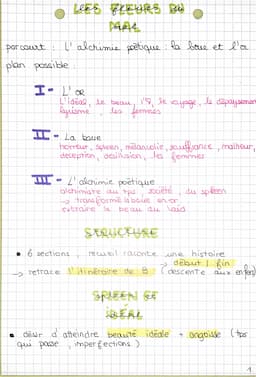 LES FLEURS DU
MAL
parcours : L'alchimie poétique : la boue et l'or
plan possible :
I - L'or
L'idéal, le beau, l', le voyage, le dépaysement
lyrisme, les femmes
II - La boue
horreur, spleen, mélancolie, souffrance, malheur,
déception, désillusion, les femmes
III - L'alchimie poétique
alchimiste du tps, société, du spleen
→ transforme la boue en or
extraire le beau du laid
STRUCTURE
• 6 sections, recueil raconte une histoire
→ début / fin
→ retrace l'itinéraire de B (descente aux enfers)
SPLEEN ET
IDÉAL
• désir d'atteindre beauté idéale + angoisse (tps
qui passe, imperfections)
1